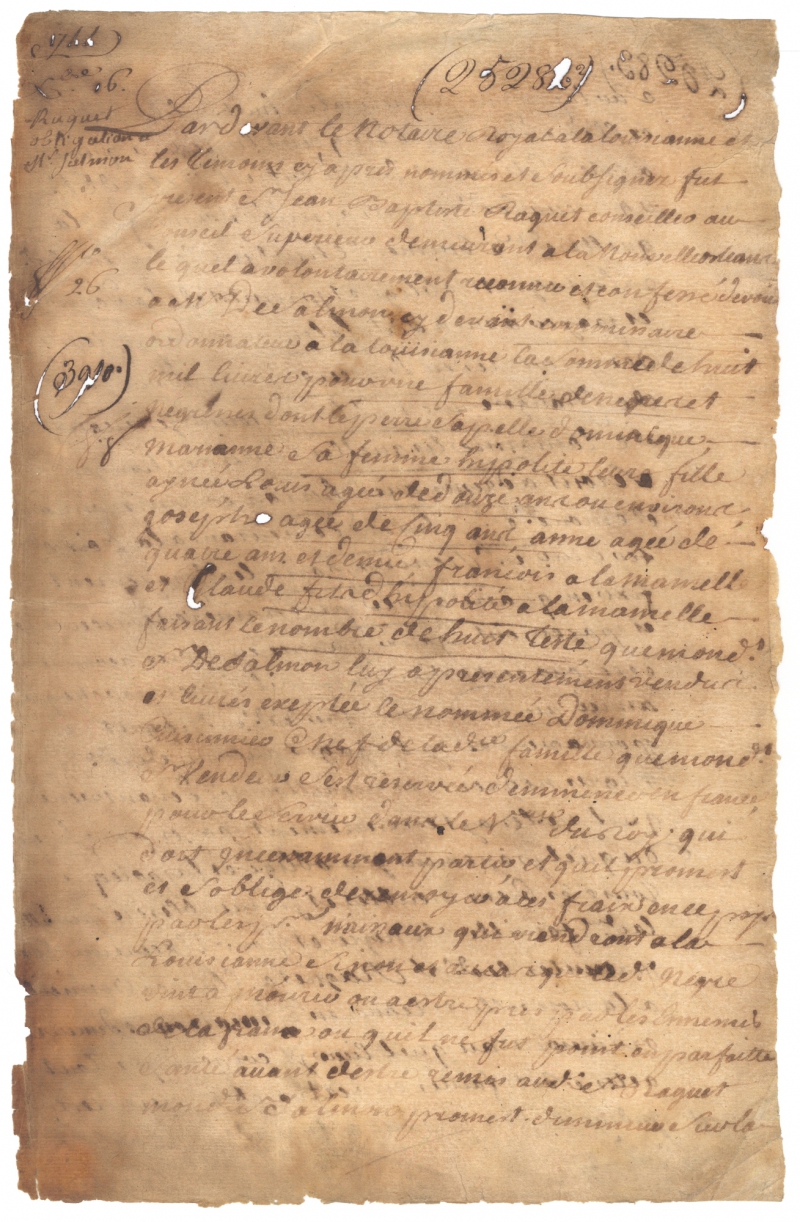 (2528)
6.
Raguet
obligation a
Mr Salmon
26
(3910.)
Pardevant le Notaire Royal a la Louisianne et
les temoins cy apres nommes et soubsignez fut
present Sr Jean Baptiste Raguet conseiller au
Conseil Superieur demeurant a la Nouvelle orleans
le quel a volontairement reconnu et confessé devoir
a Mr De Salmon cy devant commissaire
ordonnateur a la Louisianne la somme de huit
mil livres pour une famille de negres et
negresses dont le pere s'apelle Dominique
marianne sa femme hypolite leurs fille
agnée Louis agée de douze ans ou environs
joseph agée de Cinq ans, anne agée de
quatre ans et demie francois a la mamelle
et Claude fils d'hypolite a la mamelle
faisant le nombre de huit teste que mond.
Sr De Salmon luy a presentement vendus
et livrés exeptée le nommée Dominique
Chef de lade famille que mond.
Sr Vendeur s'est reservée d'emmener en france
pour les servir dans le du Roy qui
doit partir et qu'il promet
et s'oblige de renvoyer a ses frais en ce pays
par les pr. vaisseaux qui viendront a la
Louisianne et en cas que led. Negre
vint a mourir ou a estre pris par les Ennemis
de la france ou quil ne fut point en parfaitte
santé avant d'estre remis aud. Sr Raguet
mond. Sr Salmon promet diminuer sur la